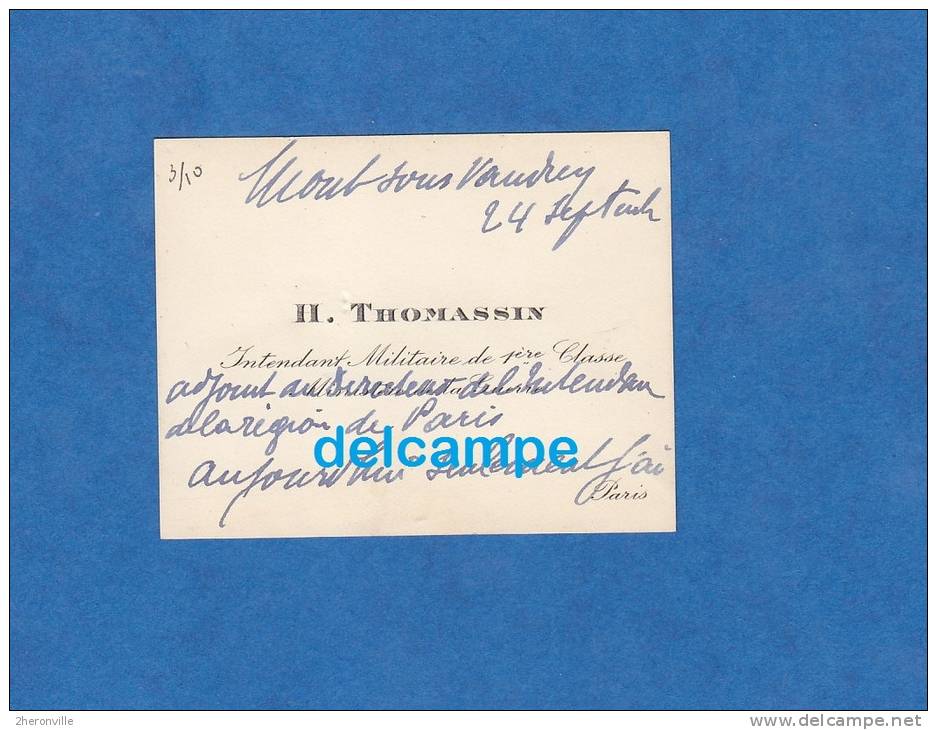 3/10
Mont sous Vaudrey
24 Septemb
H. THOMASSIN
Intendant Militaire de 1ère Classe
adjoint au directeur de l'Intendan
de la région de Paris
delcampe
aujourd'hui seulement j'ai
Paris
2heronville
www.delcampe.net